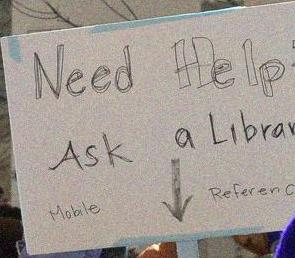 Need Help?
Ask a Librar
Mobile Referenc